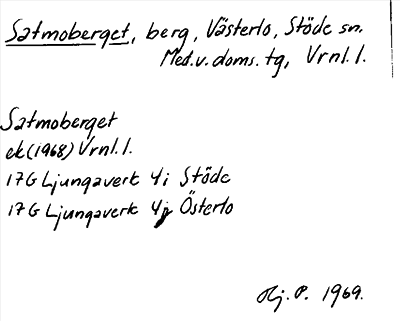 Satmoberget, berg, Västerlo, Stöde sn.
Med.v.doms.tg, Vrnl.l.
Satmoberget
ek(1968) Vrnl.l.
17G Ljungaverk 4i Stöde
17G Ljungaverk 4j Österlo
Hj. P. 1969.